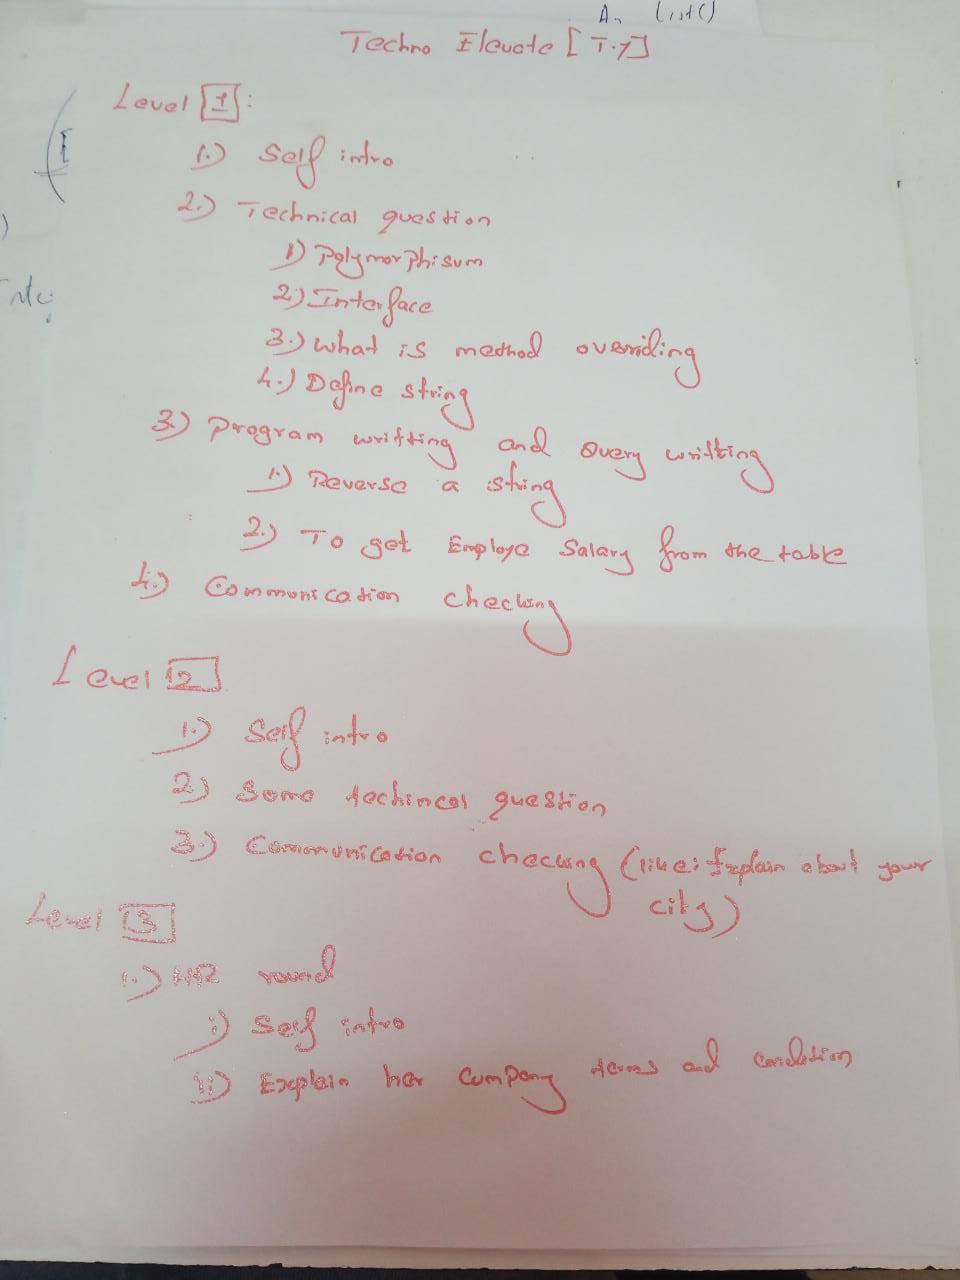 An List()
Techno Elevate [T.Y]
Level 1:
1.) Self intro
2.) Technical question
1) Polymorphisum
2.) Interface
3.) What is method overriding
4.) Define string
3.) Program writting and Query writting
1.) Reverse a string
2.) To get Employe Salary from the table
4.) Communication checking
Level 2
1.) Self intro
2) Some techincal question
3.) Communication checking (like: Explain about your
city)
Level 3
1.) HR round
i) Self intro
ii) Explain her Company terms and condition